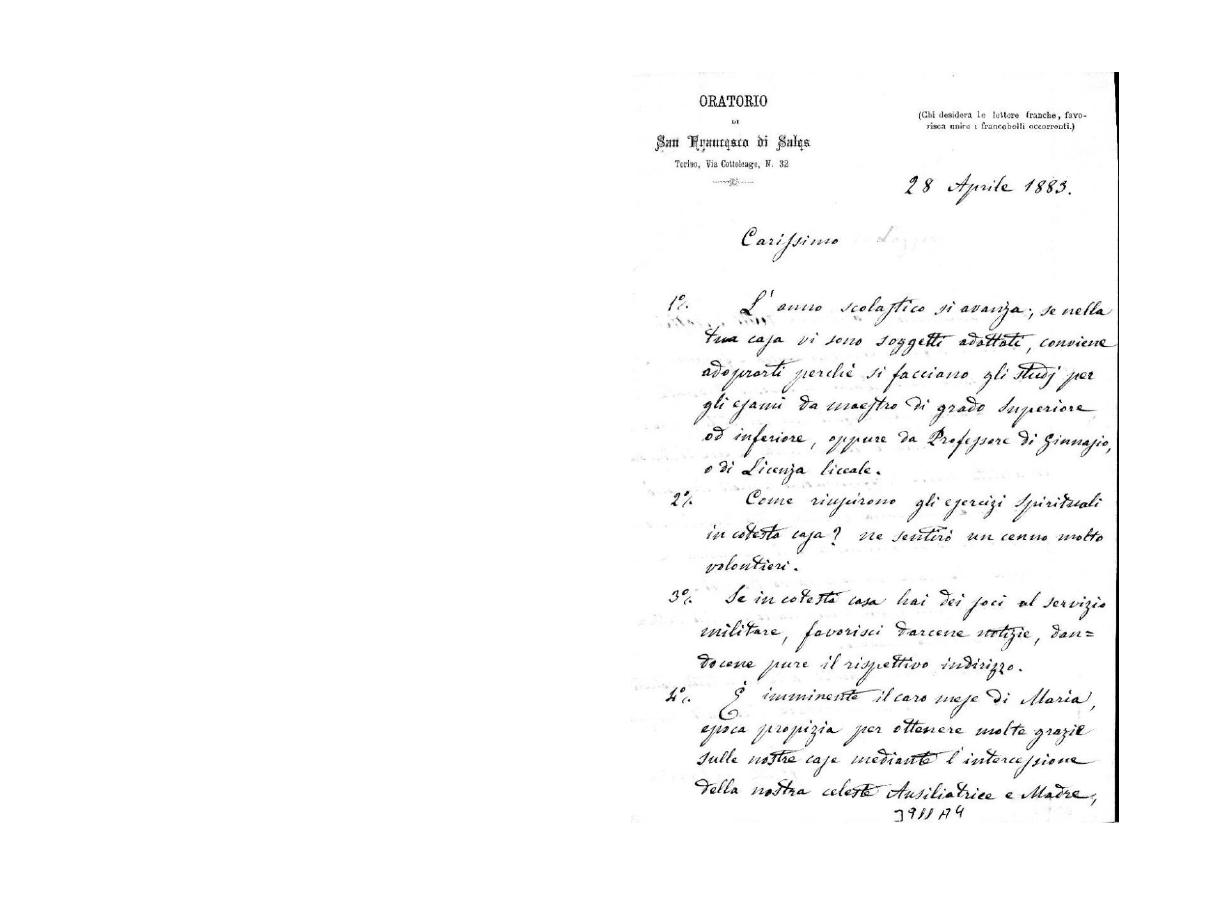 ORATORIO
DI
San Francesco di Sales
Torino, Via Cottolengo, N. 32
(Chi desidera le lettere franche, favo-
risca unire i francobolli occorrenti.)
28 Aprile 1883.
Carissimo
1°. L'anno scolastico si avanza; se nella
tua casa vi sono soggetti adattati, conviene
adoprarti perchè si facciano gli studj per
gli esami da maestro di grado superiore
od inferiore, oppure da Professore di Ginnasio,
o di Licenza liceale.
2°. Come riuscirono gli esercizi spirituali
in cotesta casa? ne sentirò un cenno molto
volontieri.
3°. Se in cotesta casa hai dei soci al servizio
militare, favorisci darcene notizie, dan=
docene pure il rispettivo indirizzo.
4°. È imminente il caro mese di Maria,
epoca propizia per ottenere molte grazie
sulle nostre case mediante l'intercessione
della nostra celeste Ausiliatrice e Madre,
3988 A4